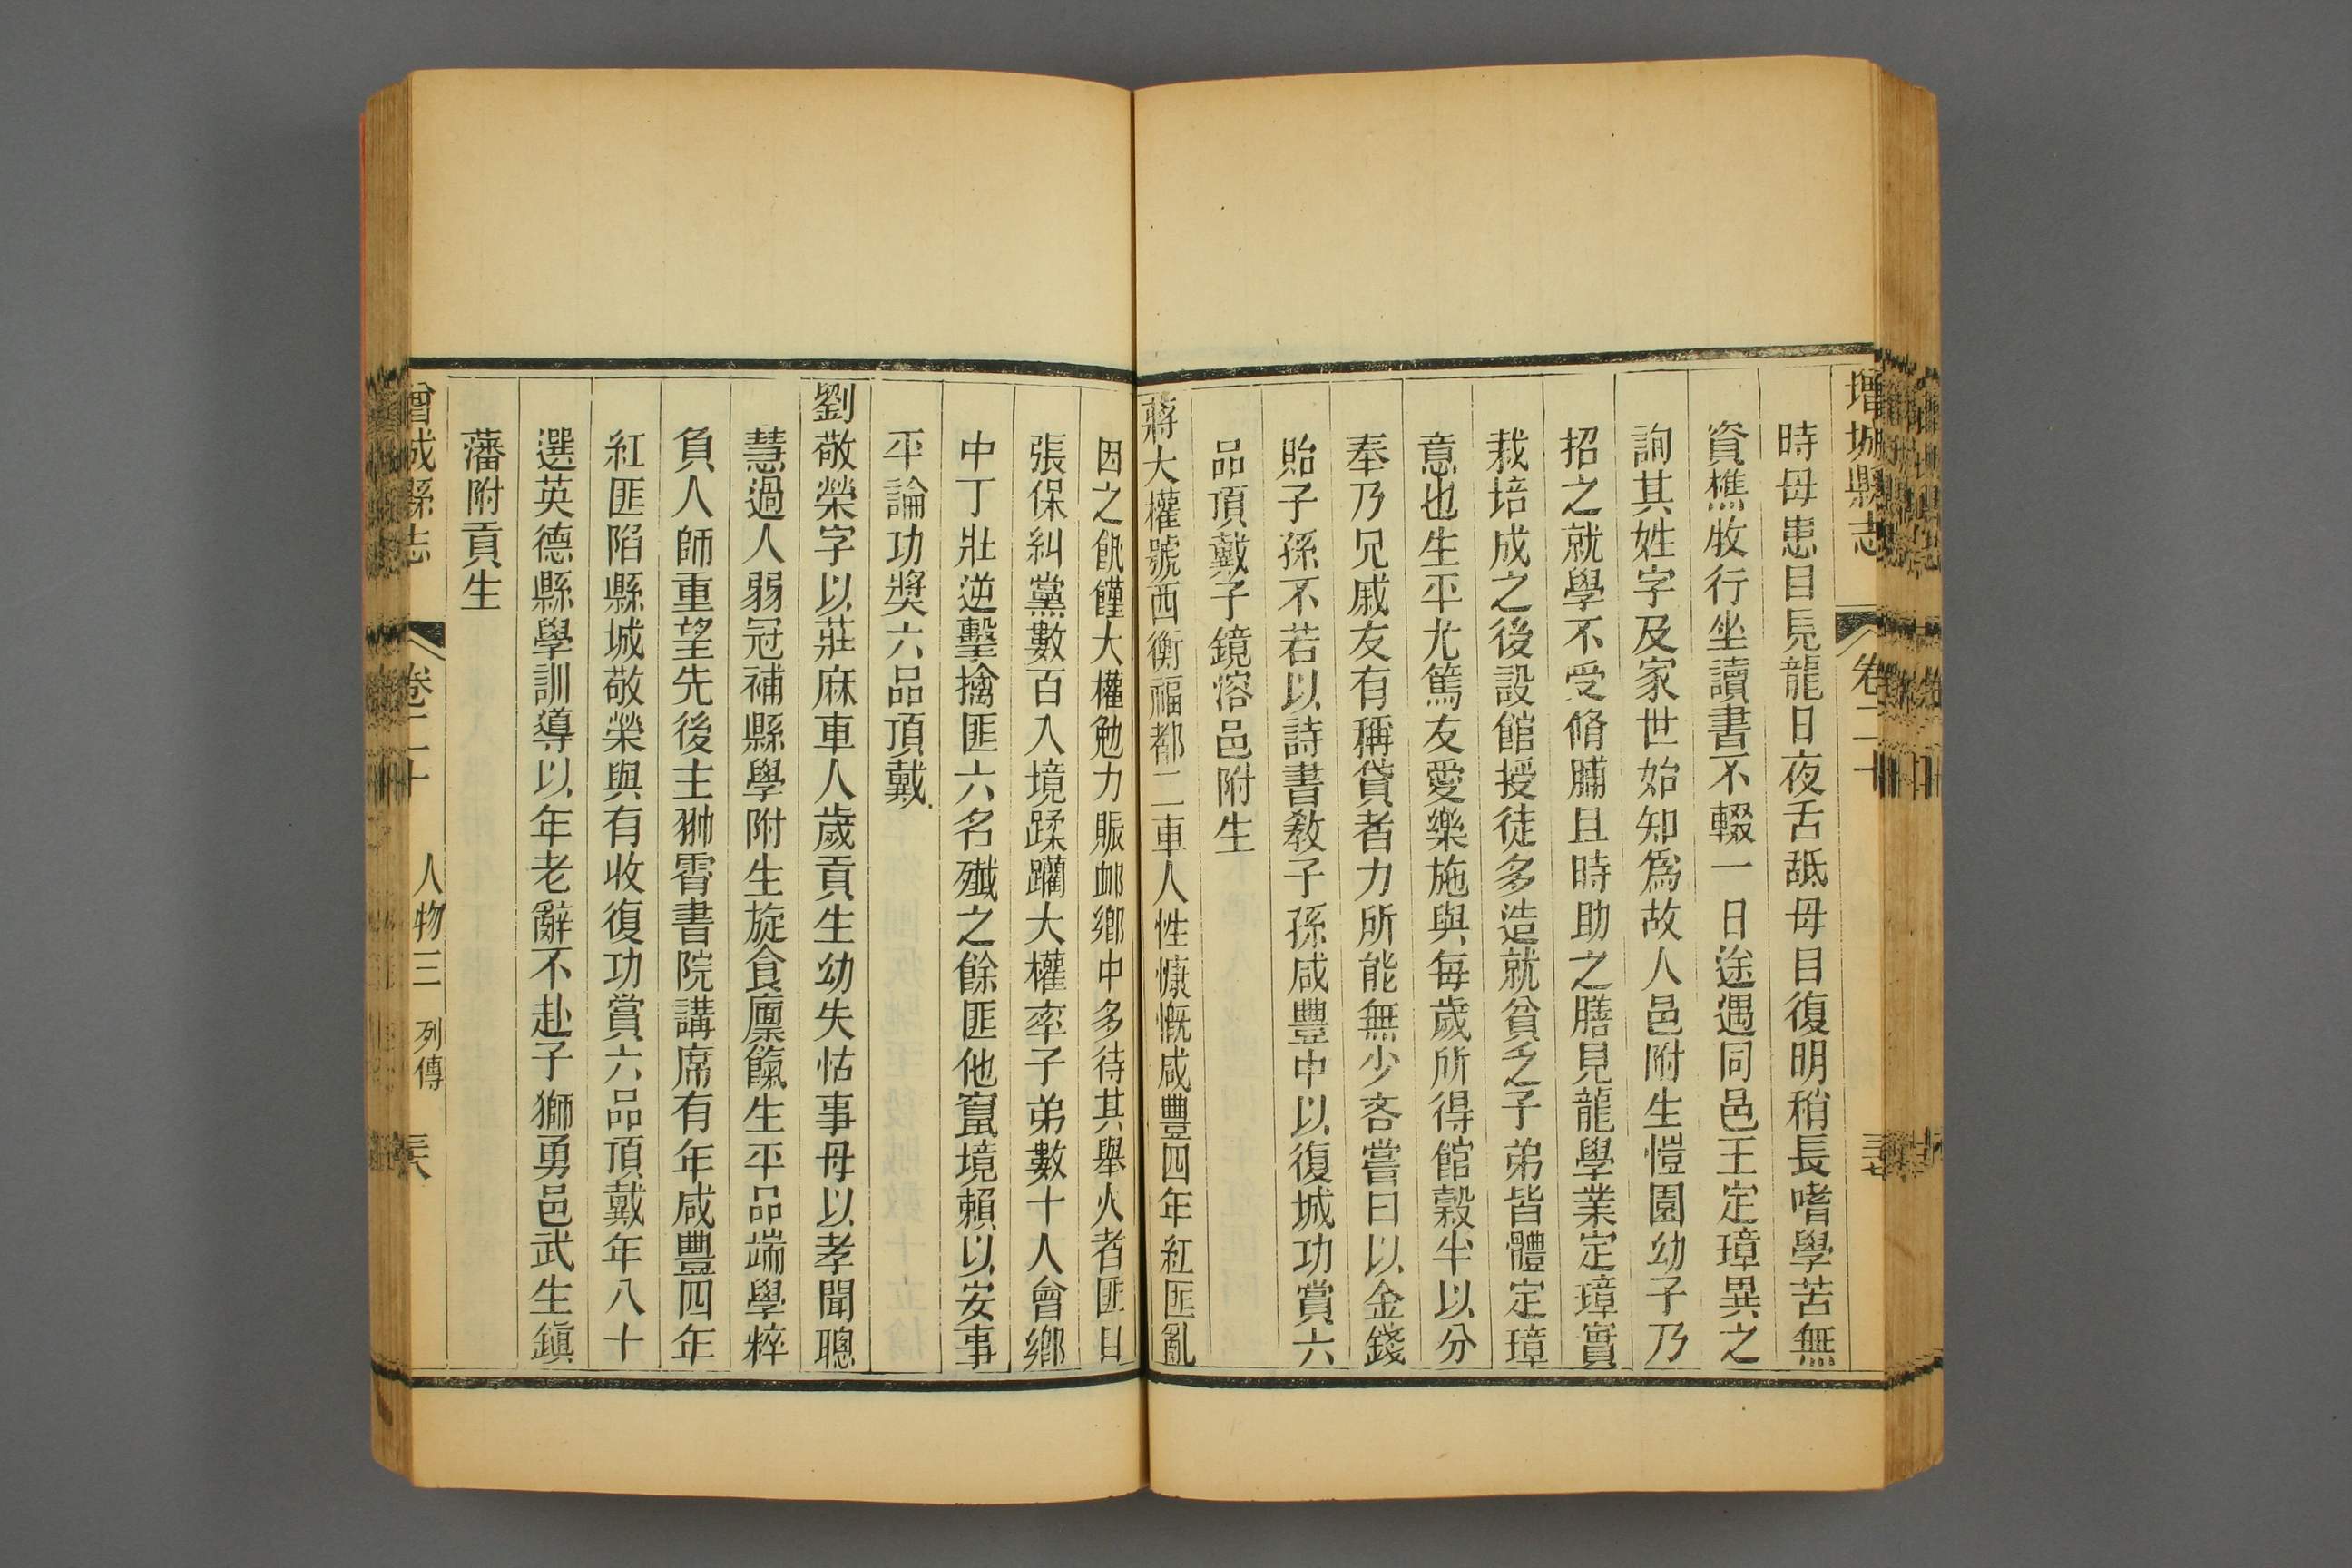 增城縣志 卷二十 三七
時母患目見龍日夜舌舐母目復明稍長嗜學苦無
資樵牧行坐讀書不輟一日途遇同邑王定璋異之
詢其姓字及家世始知爲故人邑附生愷園幼子乃
招之就學不受脩脯且時助之膳見龍學業定璋實
栽培成之後設館授徒多造就貧乏子弟皆體定璋
意也生平尤篤友愛樂施與每歲所得館穀半以分
奉乃兄戚友有稱貸者力所能無少吝嘗曰以金錢
貽子孫不若以詩書教子孫咸豐中以復城功賞六
品頂戴子鏡溶邑附生
蔣大權號西衡福都二車人性慷慨咸豐四年紅匪亂
因之飢饉大權勉力賑卹鄉中多待其舉火者匪目
張保糾黨數百入境蹂躪大權率子弟數十人會鄉
中丁壯逆擊擒匪六名殲之餘匪他竄境賴以安事
平論功獎六品頂戴
劉敬榮字以莊麻車人歲貢生幼失怙事母以孝聞聰
慧過人弱冠補縣學附生旋食廩餼生平品端學粹
負人師重望先後主翀霄書院講席有年咸豐四年
紅匪陷縣城敬榮與有收復功賞六品頂戴年八十
選英德縣學訓導以年老辭不赴子獅勇邑武生鎮
藩附貢生
增城縣志 卷二十 人物三 列傳 三八